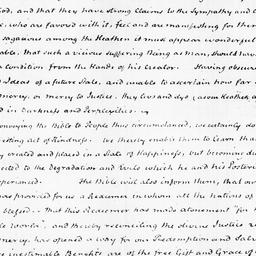 God, and that they have strong Claims to the Sympathy and C
who are favored with it, feel and are manifesting for them
sagacious among the Heathen it must appear wonderful
able, that such a vicious suffering thing as man, should have
a condition from the Hands of his Creator. Having obscure
Ideas of a future State, and unable to ascertain how far
mercy, or mercy to Justice. They live and dye (as our Heathen
in Darkness and Perplexities
conveying the Bible to People thus circumstanced, we certainly do
esting act of Kindness. We thereby enable them to learn that
created and placed in a State of Happiness, but becoming
ected to the degradation and Evils which he and his Posterity
experienced. The Bible will also inform them, that our
has provided for us a Redeemer in whom all the nations of
blessed. That this Redeemer has made atonement "for the
whole World", and thereby reconciling the divine Justice
mercy, has opened a way for our Redemption and Salvation
inestimable Benefits are of the Free Gift and Grace of